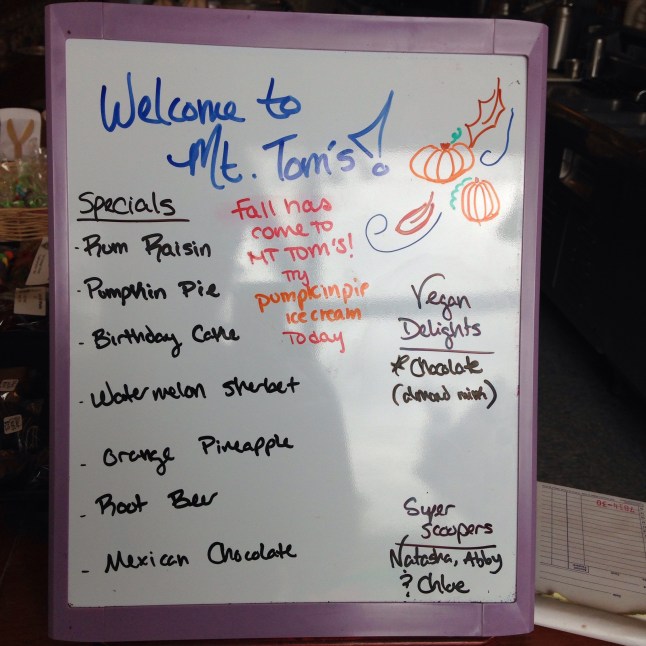 Welcome to
Mt. Tom's!
Specials
- Rum Raisin
- Pumpkin Pie
- Birthday Cake
- Watermelon sherbet
- Orange Pineapple
- Root Beer
- Mexican Chocolate
Fall has
come to
MT TOM'S!
Try
pumpkin pie
ice cream
Today
Vegan
Delights
* Chocolate
(almond milk)
Super
Scoopers
Natasha, Abby
& Chloe